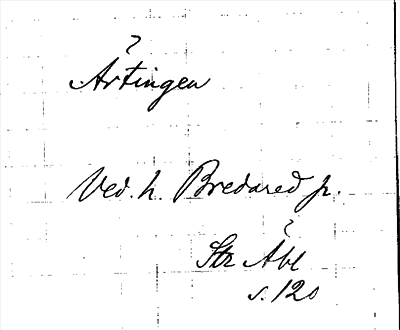 ?
Artingen
Ved. h. Bredared p.
?
Str Äbl
s. 120